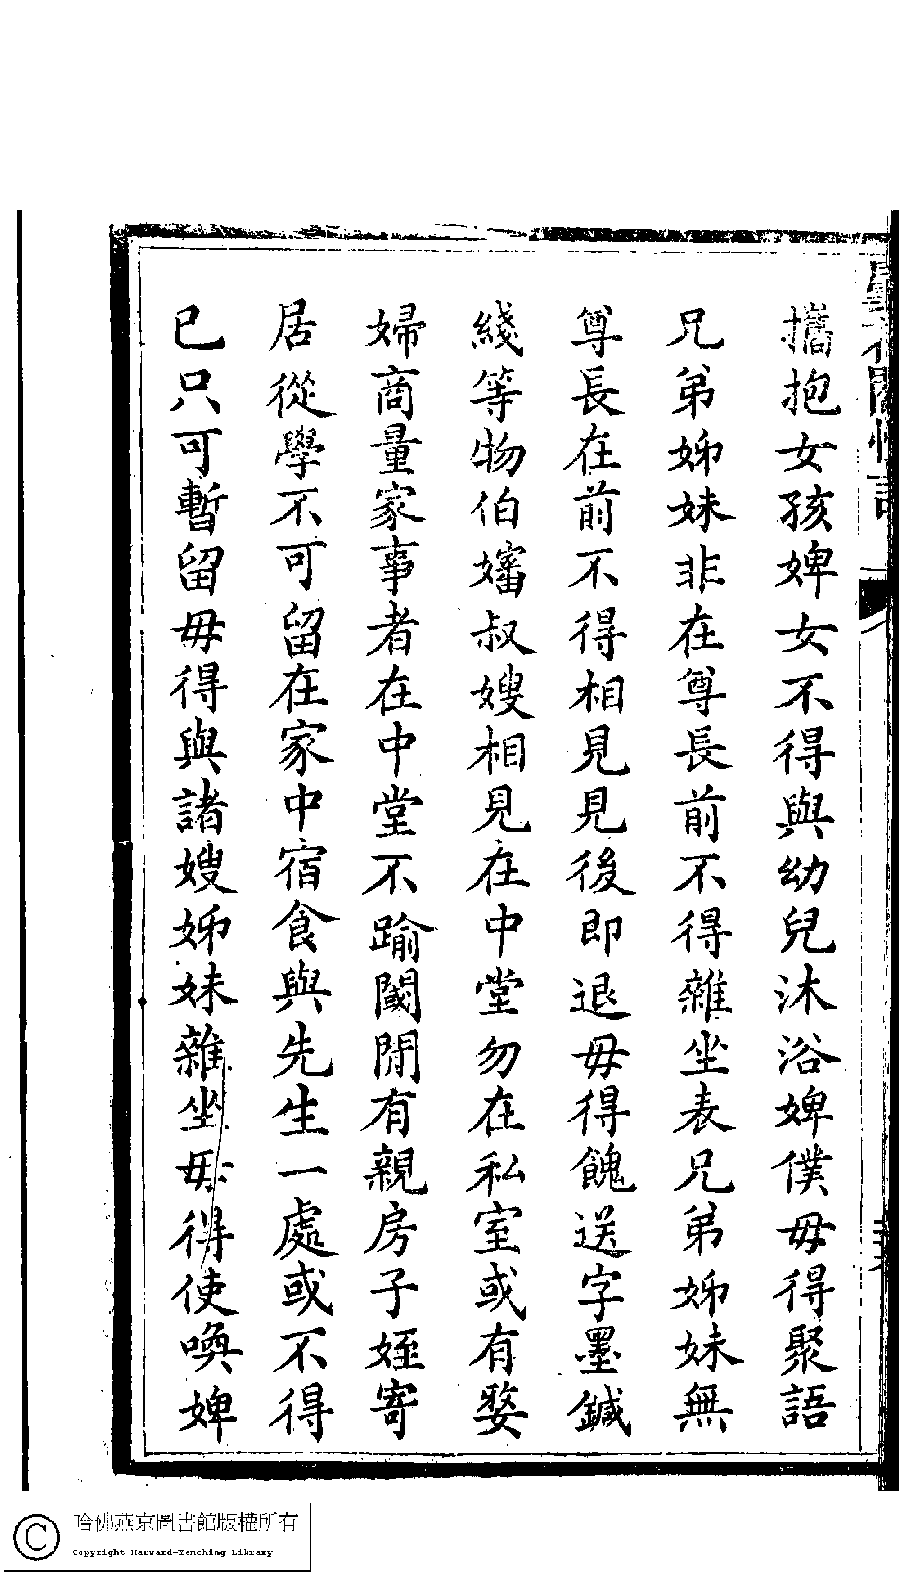 攜抱女孩婢女不得與幼兒沐浴婢僕毋得聚語
兄弟姊妹非在尊長前不得雜坐表兄弟姊妹無
尊長在前不得相見見後即退毋得餽送字墨鍼
綫等物伯嬸叔嫂相見在中堂勿在私室或有婺
婦商量家事者在中堂不踰閾閒有親房子姪寄
居從學不可留在家中宿食與先生一處或不得
已只可暫留毋得與諸嫂姊妹雜坐毋得使喚婢
哈佛燕京圖書館版權所有
Copyright Harvard-Yenching Library